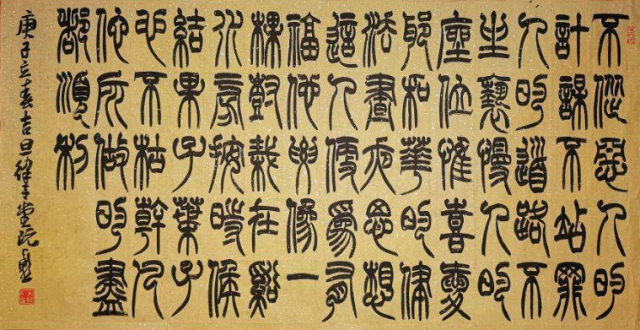 不從惡人的
計謀不站罪
人的道路不
坐褻慢人的
座位惟喜愛
耶和華的律
法晝夜思想
這人便為有
福他要像一
棵樹栽在溪
水旁按時候
結果子葉子
也不枯幹凡
他所做的盡
都順利
庚子立春吉旦